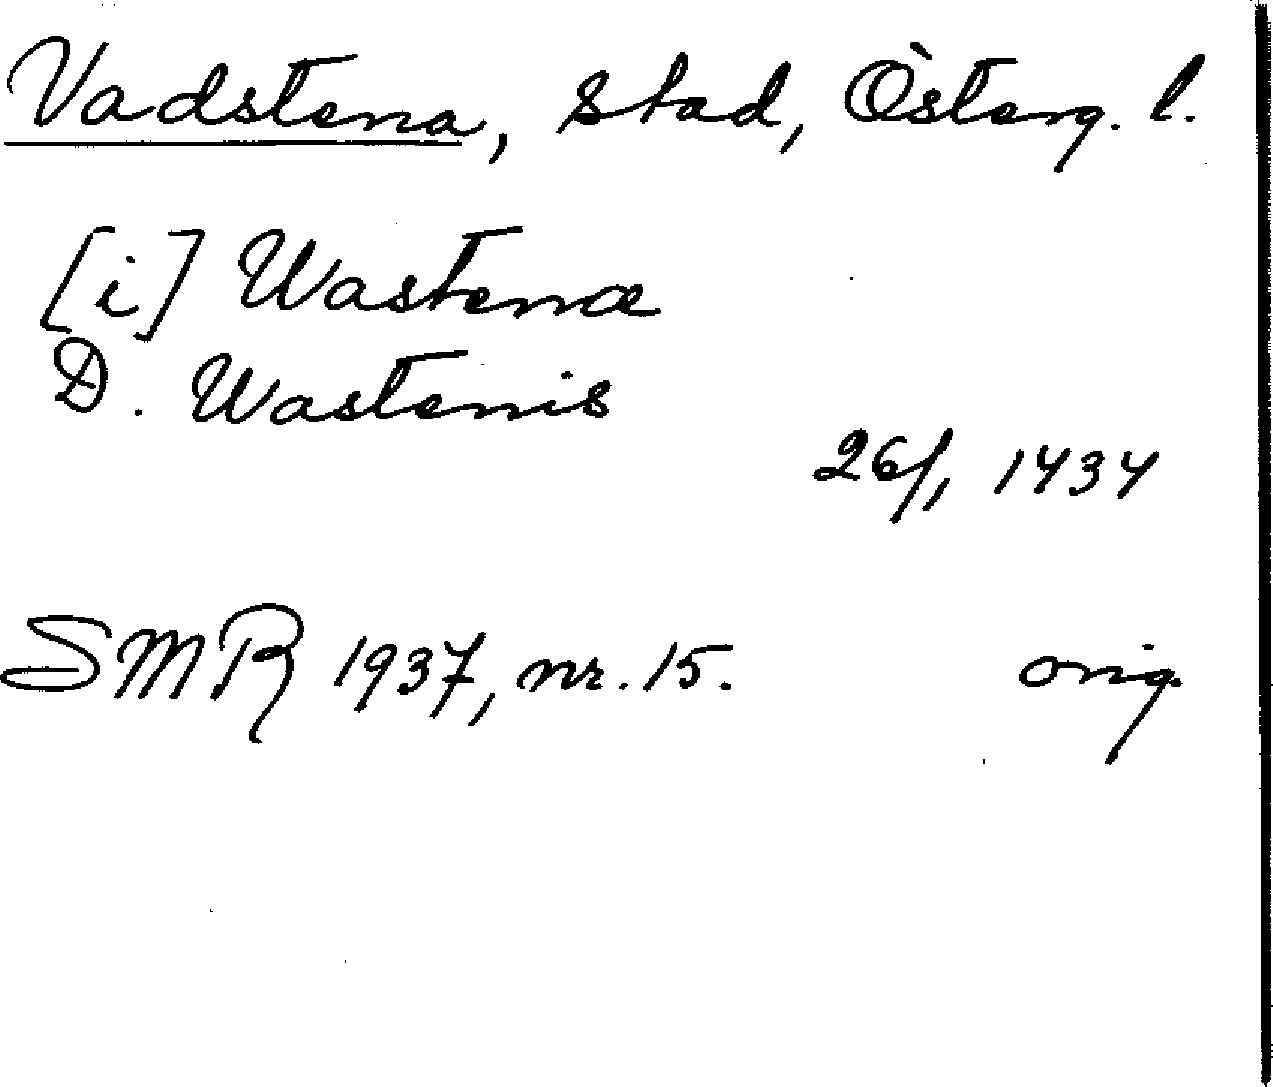 Vadstena, stad, Österg. l.
[i] Wastenæ
D. Wastenis
26/1 1434
SMR 1937, nr. 15. orig.